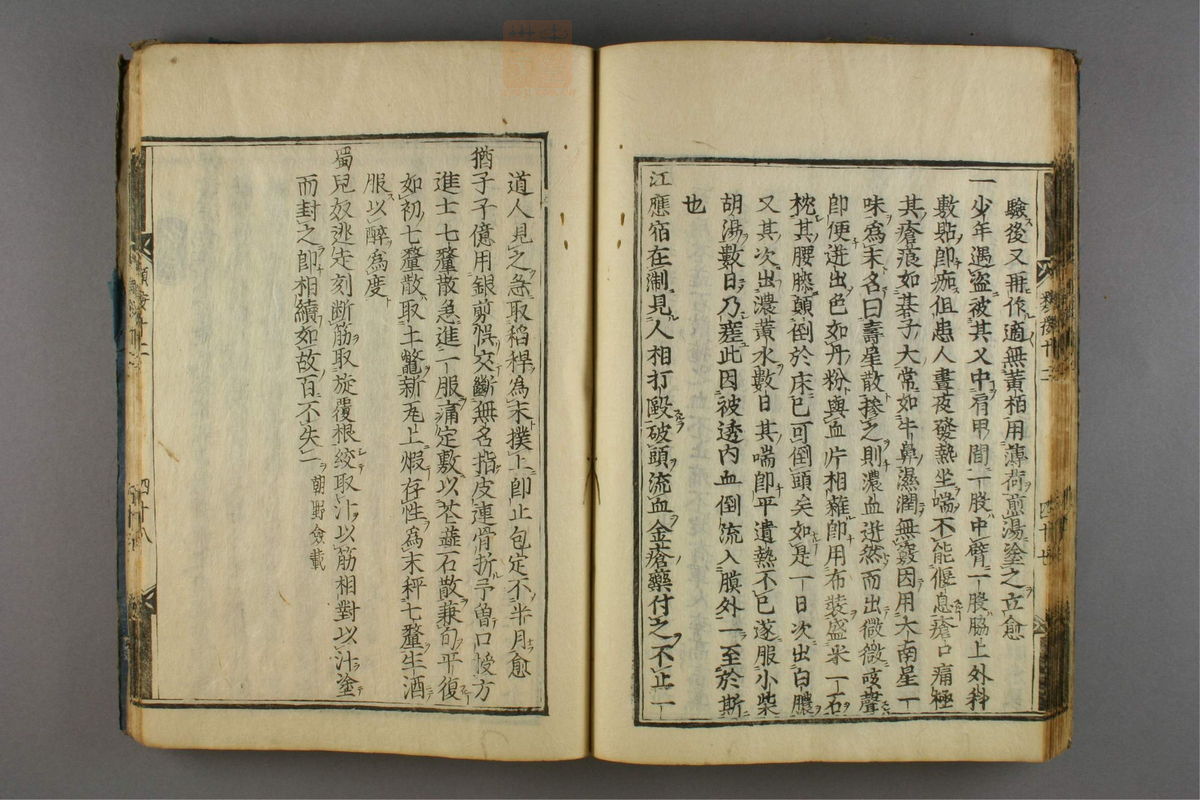 驗後又再作適無黃栢用薄荷煎湯塗之立愈
一少年遇盜被其叉中肩甲間一股中臂一股脇上外科
敷貼即痂但患人晝夜發熱坐喘不能偃息瘡口痛極
其瘡痕如碁子大常如牛鼻濕潤無竅因用大南星一
味為末名曰壽星散摻之則濃血迸然而出微微咳聲
即便迸出色如丹粉與血片相雜即用布裝盛米一石
枕其腰膝顛倒於床已可倒頭矣如是一日次出白膿
又其次出濃黃水數日其喘即平遺熱不已遂服小柴
胡湯數日乃瘥此因被透內血倒流入膜外一至於斯
也
江應宿在淛見人相打毆破頭流血金瘡藥付之不止一
四十七
道人見之急取稻稈為末摸上即止包定不半月愈
猶子子億用銀剪悞交斷無名指皮連骨折予曾口授方
進士七釐散急進一服痛定敷以花蕋石散兼旬平復
如初七釐散取土鱉新瓦上煆存性為末秤七釐生酒
服以醉為度
蜀兒奴逃走刻断筋取旋覆根絞取汁以筋相對以汁塗
而封之即相續如故百不失一 朝野僉載
四十八